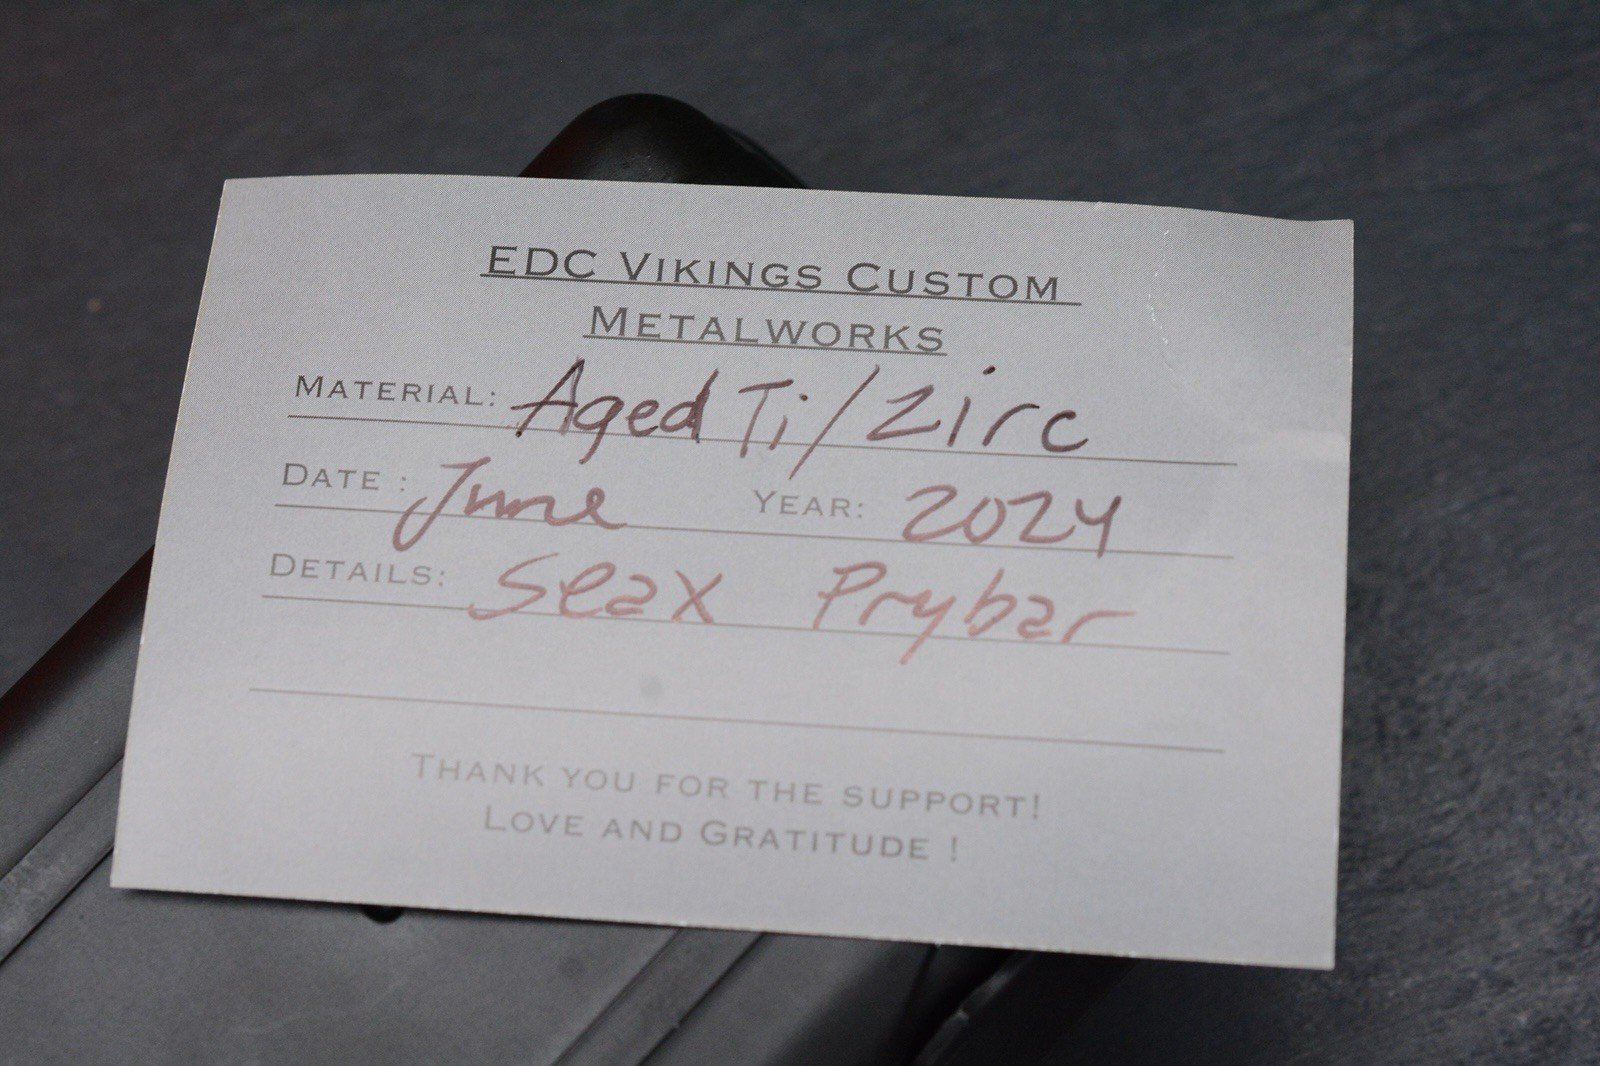 EDC Vikings Custom
Metalworks
Material: Aged Ti/Zirc
Date : June Year: 2024
Details: Seax Prybar
Thank you for the support!
Love and Gratitude !